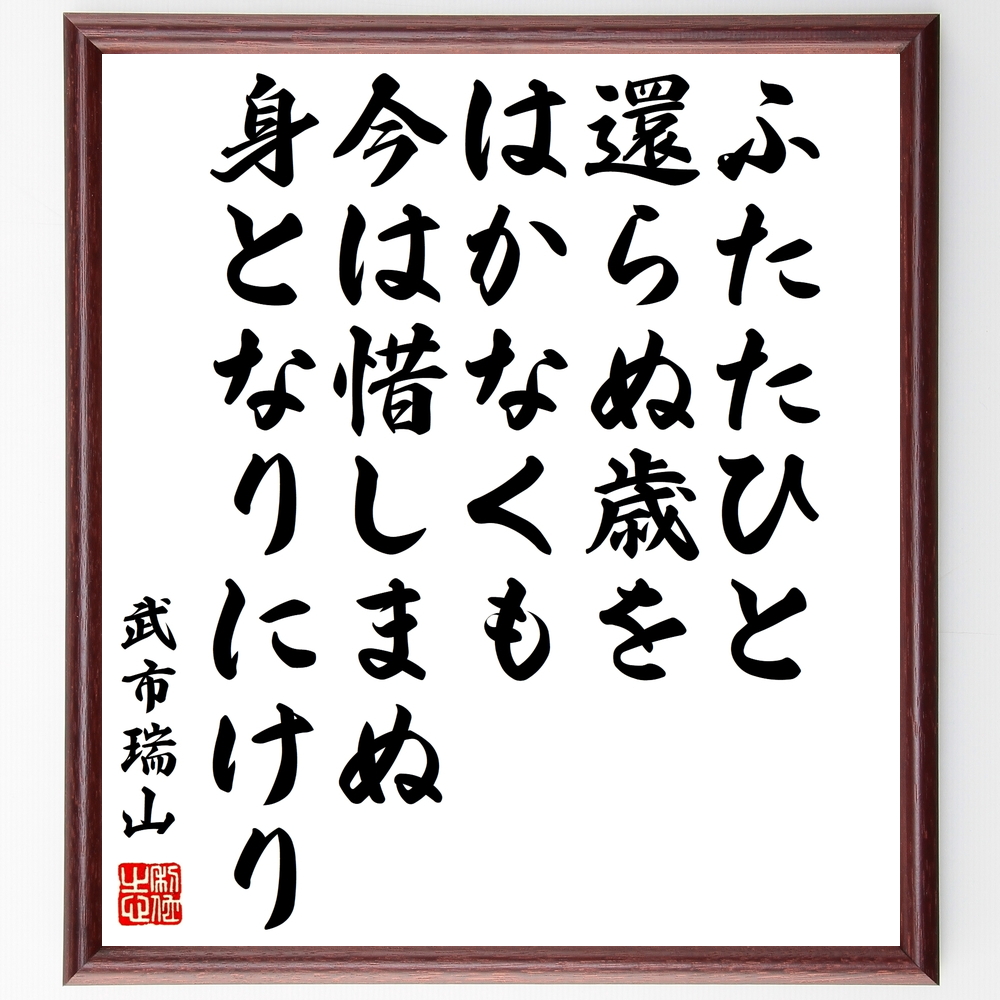 ふたたひと
還らぬ歳を
はかなくも
今は惜しまぬ
身となりにけり
武市瑞山